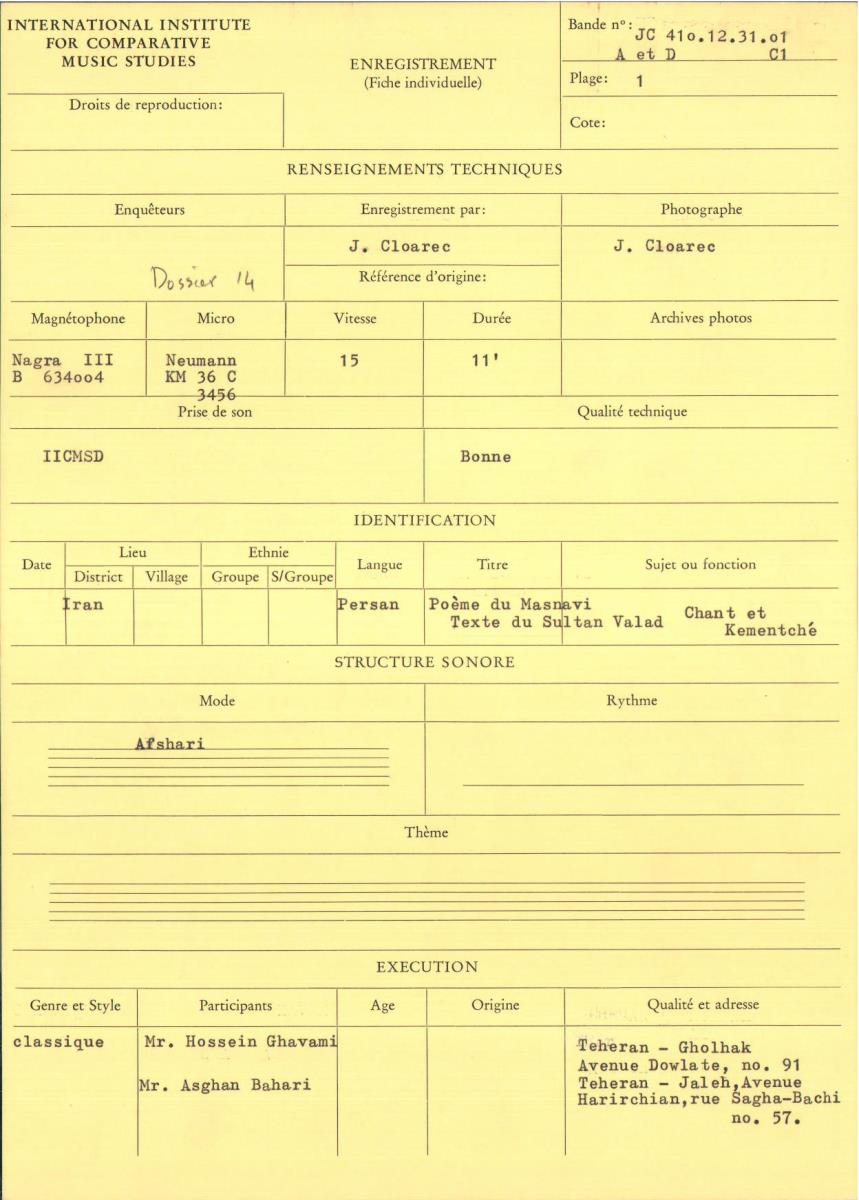 INTERNATIONAL INSTITUTE
FOR COMPARATIVE
MUSIC STUDIES
Droits de reproduction:
ENREGISTREMENT
(Fiche individuelle)
Bande nº: JC 41o.12.31.o1
A et D C1
Plage: 1
Cote:
RENSEIGNEMENTS TECHNIQUES
Enquêteurs Enregistrement par: Photographe
J. Cloarec J. Cloarec
Dossier 14 Référence d'origine:
Magnétophone Micro Vitesse Durée Archives photos
Nagra III Neumann 15 11'
B 634oo4 KM 36 C
3456
Prise de son Qualité technique
IICMSD Bonne
IDENTIFICATION
Date Lieu Ethnie Langue Titre Sujet ou fonction
District Village Groupe S/Groupe
Iran Persan Poème du Masnavi Chant et
Texte du Sultan Valad Kementché
STRUCTURE SONORE
Mode Rythme
Afshari
Thème
EXECUTION
Genre et Style Participants Age Origine Qualité et adresse
classique Mr. Hossein Ghavami Teheran - Gholhak
Avenue Dowlate, no. 91
Mr. Asghan Bahari Teheran - Jaleh,Avenue
Harirchian,rue Sagha-Bachi
no. 57.